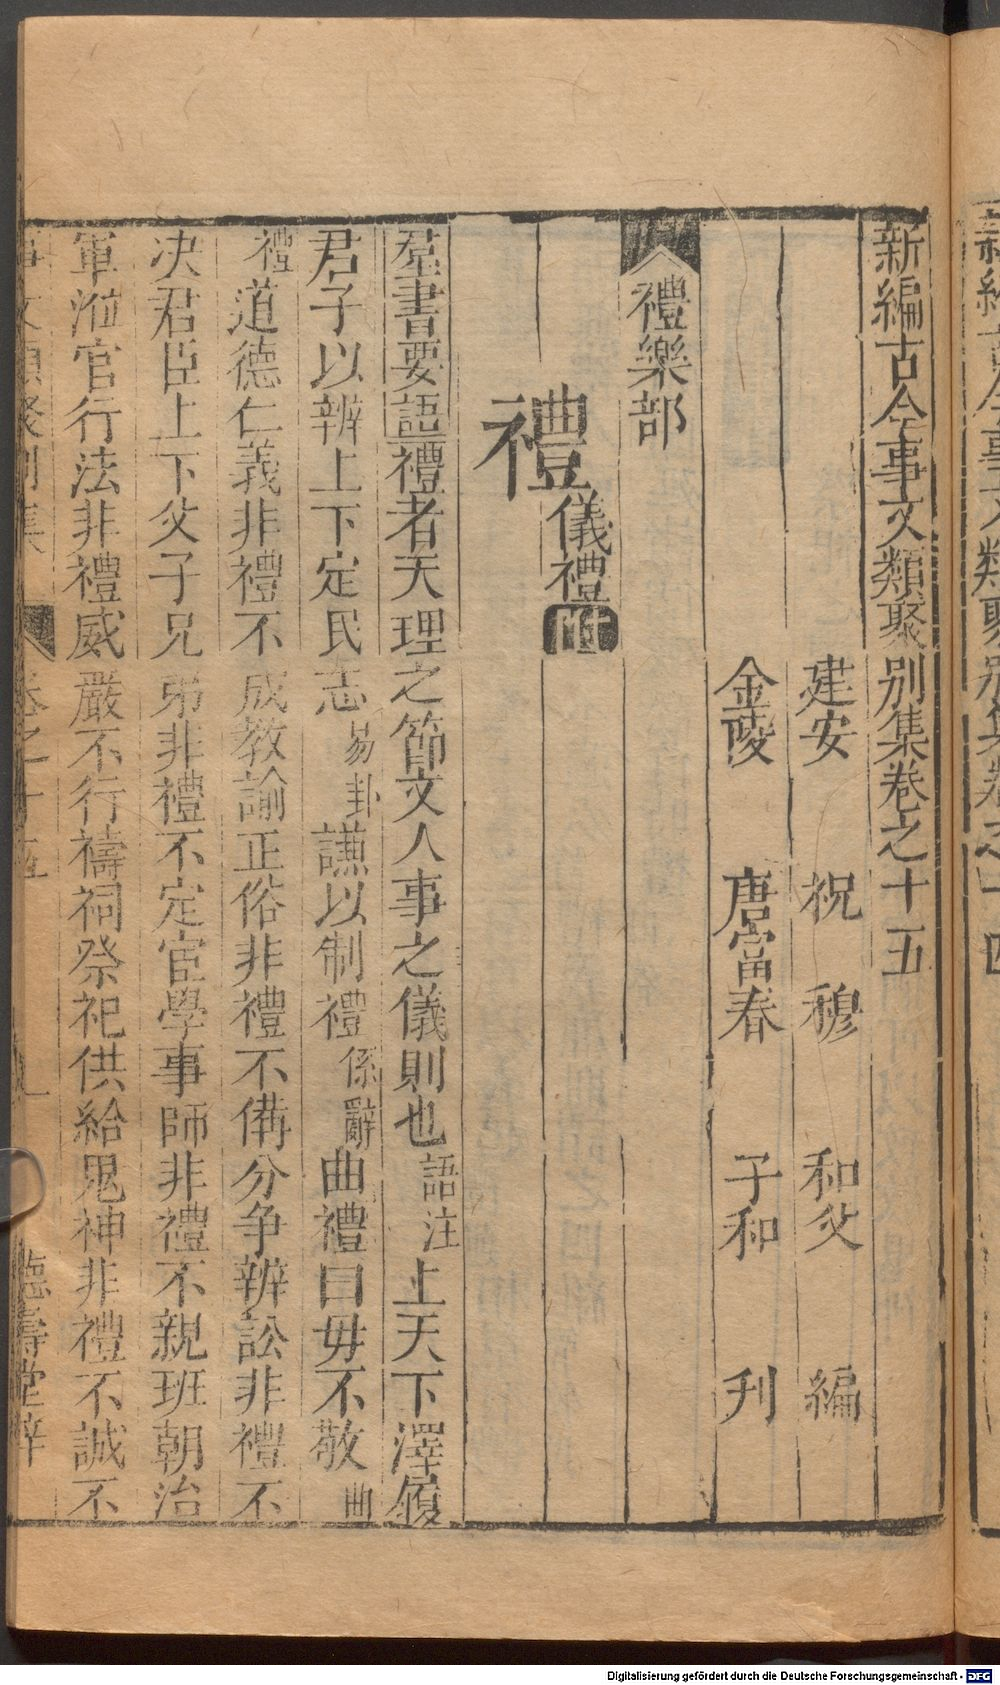 新編古今事文類聚別集卷之十五
建安 祝 穆 和父 編
金陵 唐富春 子和 刋
禮樂部
禮儀禮附
羣書要語禮者天理之節文人事之儀則也語注上天下澤履
君子以辨上下定民志易卦謙以制禮係辭曲禮曰毋不敬曲
禮道德仁義非禮不成教諭正俗非禮不備分争辨訟非禮不
决君臣上下父子兄弟非禮不定宦學事師非禮不親班朝治
軍涖官行法非禮威嚴不行禱祠祭祀供給鬼神非禮不誠不
卷之十五
德壽堂梓
Digitalisierung gefördert durch die Deutsche Forschungsgemeinschaft - DFG